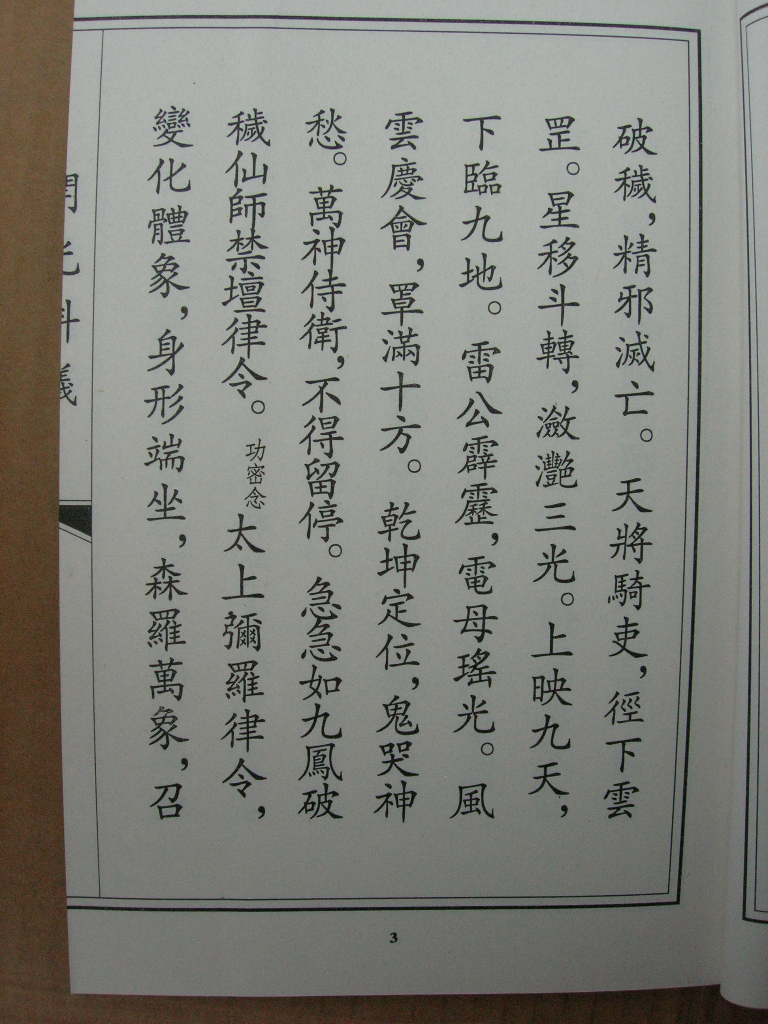 破穢，精邪滅亡。天將騎吏，徑下雲
罡。星移斗轉，瀲灩三光。上映九天，
下臨九地。雷公霹靂，電母瑤光。風
雲慶會，罩滿十方。乾坤定位，鬼哭神
愁。萬神侍衛，不得留停。急急如九鳳破
穢仙師禁壇律令。功密念太上彌羅律令，
變化體象，身形端坐，森羅萬象，召
開光科儀
3